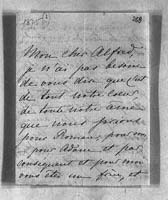 Mon cher Alfred
je n'ai pas besoin
de vous dire que c'est
de tout notre cœur
de toute notre âme
que nous prions
pour Roman, pour vous
pour Adam et par
conséquent et pour moi
vous êtes un frère, et